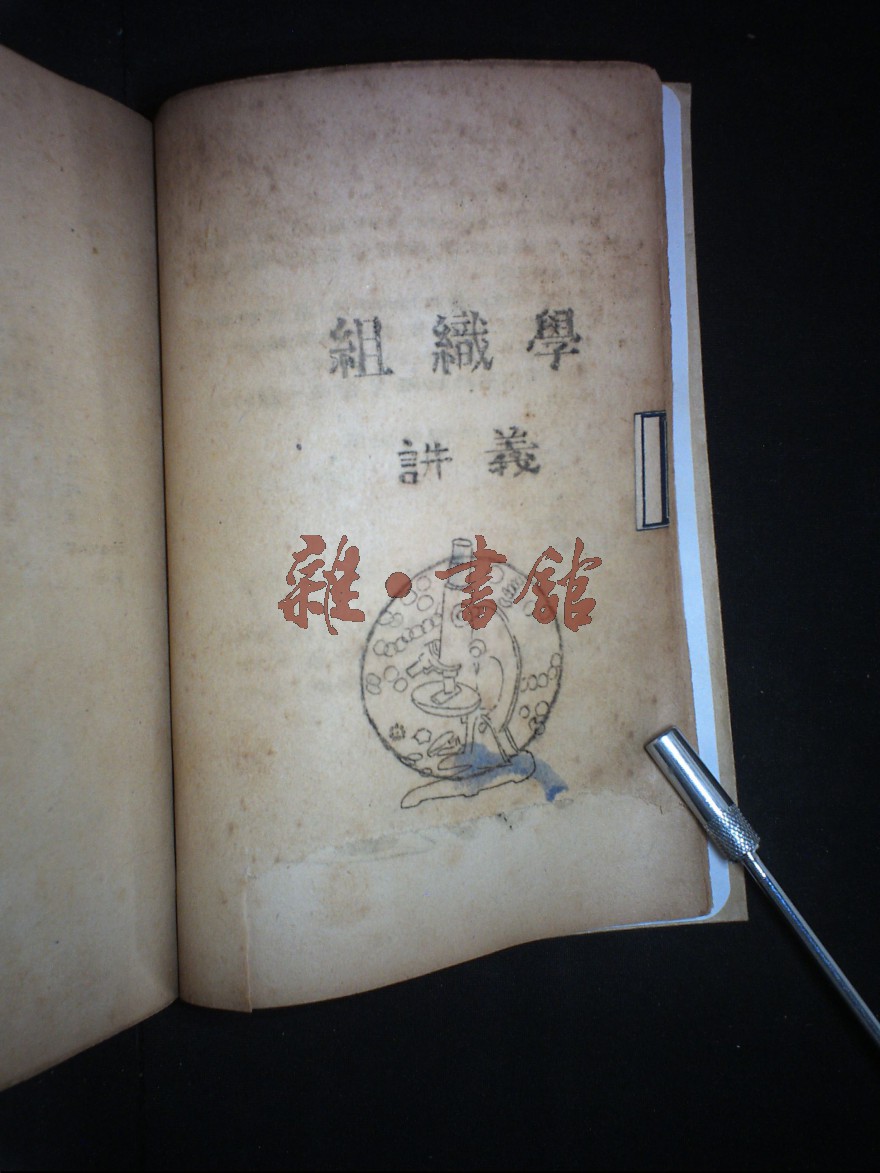 組織學
讲義
雜·書館